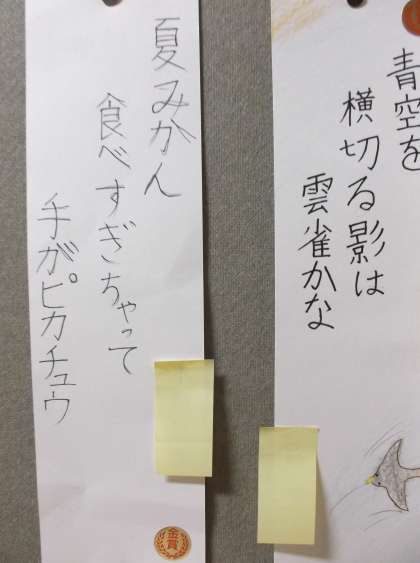 青空を
横切る影は
雲雀かな
夏みかん
食べすぎちゃって
手がピカチュウ
金賞